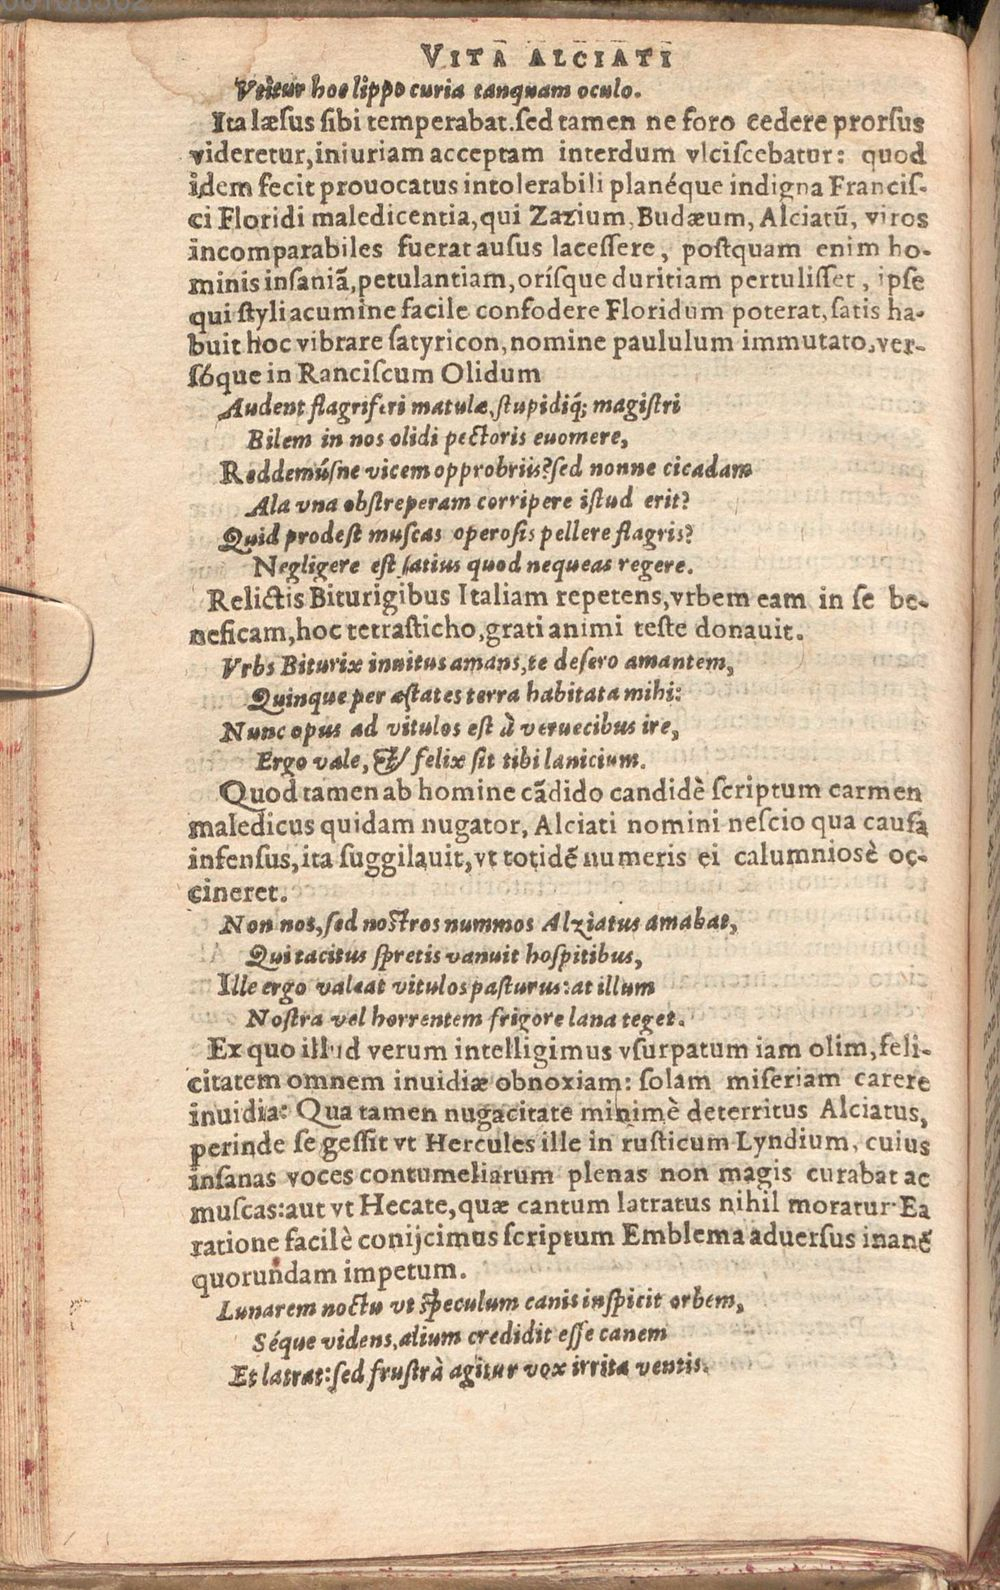 VITA ALCIATI
Vtitur hoc lippo curia tanquam oculo.
Ita læsus sibi temperabat. sed tamen ne foro cedere prorsus
videretur, iniuriam acceptam interdum vlciscebatur: quod
idem fecit prouocatus intolerabili planéque indigna Francis-
ci Floridi maledicentia, qui Zazium, Budæum, Alciatū, viros
incomparabiles fuerat ausus lacessere, postquam enim ho-
minis insaniā, petulantiam, orísque duritiam pertulisset, ipse
qui styli acumine facile confodere Floridum poterat, satis ha-
buit hoc vibrare satyricon, nomine paululum immutato, ver-
sóque in Ranciscum Olidum
Audent flagriferi matulæ, stupidiq́; magistri
Bilem in nos olidi pectoris euomere,
Reddemúsne vicem opprobriis? sed nonne cicadam
Ala vna obstreperam corripere istud erit?
Quid prodest muscas operosis pellere flagris?
Negligere est satius quod nequeas regere.
Relictis Biturigibus Italiam repetens, vrbem eam in se be-
neficam, hoc tetrasticho, grati animi teste donauit.
Vrbs Biturix inuitus amans, te desero amantem,
Quinque per æstates terra habitata mihi:
Nunc opus ad vitulos est à veruecibus ire,
Ergo vale, & felix sit tibi lanicium.
Quod tamen ab homine cādido candidè scriptum carmen
maledicus quidam nugator, Alciati nomini nescio qua causa
infensus, ita suggilauit, vt totidē numeris ei calumniosè oc-
cineret.
Non nos, sed nostros nummos Alziatus amabat,
Qui tacitus spretis vanuit hospitibus,
Ille ergo valeat vitulos pasturus: at illum
Nostra vel horrentem frigore lana teget.
Ex quo illud verum intelligimus vsurpatum iam olim, feli-
citatem omnem inuidiæ obnoxiam: solam miseriam carere
inuidia: Qua tamen nugacitate minimè deterritus Alciatus,
perinde se gessit vt Hercules ille in rusticum Lyndium, cuius
insanas voces contumeliarum plenas non magis curabat ac
muscas: aut vt Hecate, quæ cantum latratus nihil moratur. Ea
ratione facilè conijcimus scriptum Emblema aduersus inanē
quorundam impetum.
Lunarem noctu vt speculum canis inspicit orbem,
Séque videns, alium credidit esse canem
Et latrat: sed frustrà agitur vox irrita ventis.